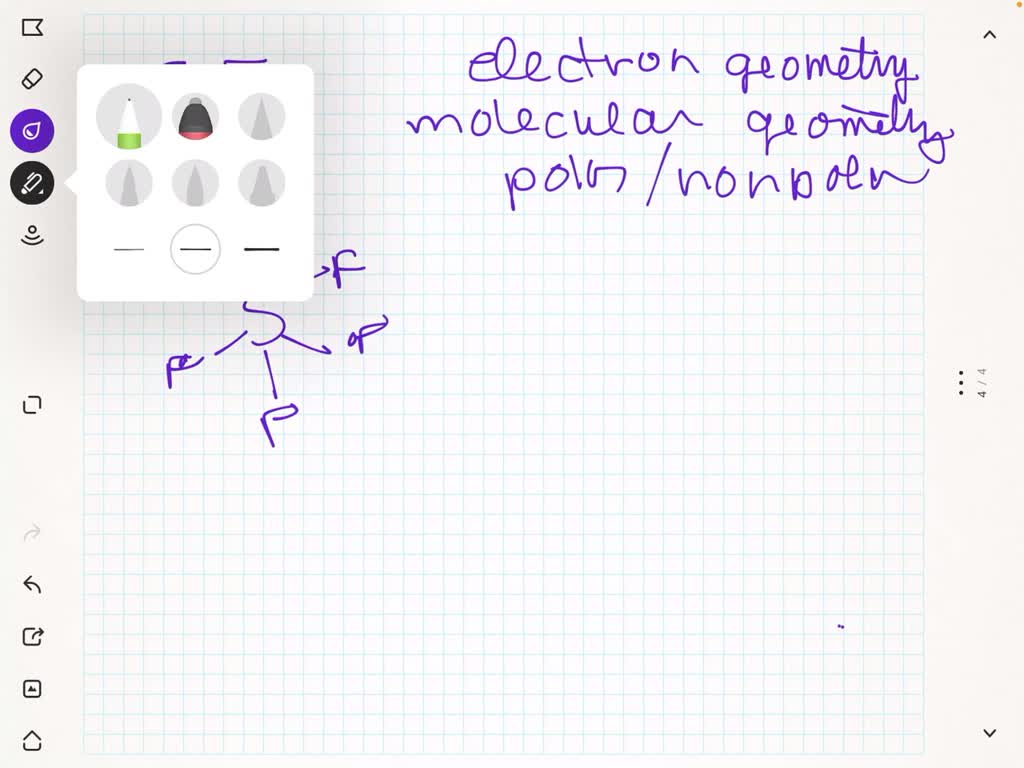 electron geometry
molecular geometry
polar/nonpolar
F
S
F
F
F
4 / 4